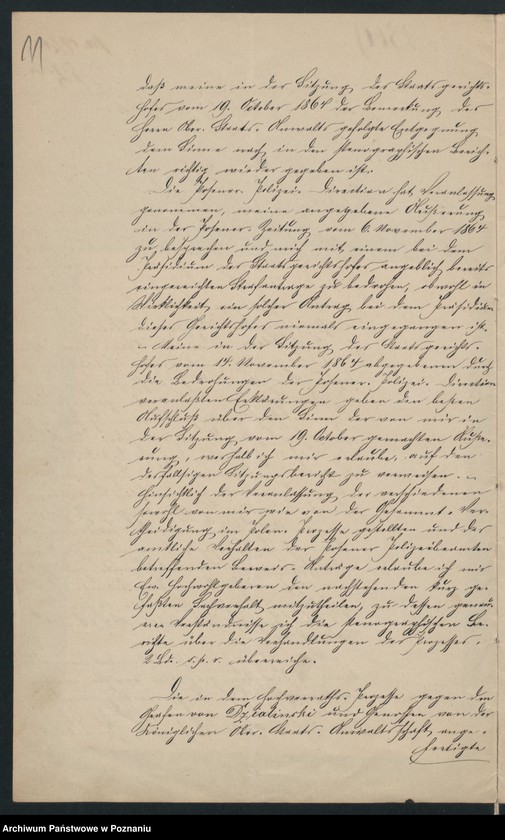 11
daß meine in der Sitzung des Staatsgerichts-
hofes vom 19. October 1864 der Bemerkung des
Herrn Ober-Staats-Anwalts gefolgte Entgegnung
dem Sinne nach in den stenographischen Berich-
ten richtig wieder gegeben ist.
Die Posener Polizei-Direction hat Veranlassung
genommen, meine angegebene Äußerung
in der Posener Zeitung vom 6. November 1864
zu besprechen und mich mit einem bei dem
Präsidium des Staatsgerichtshofes angeblich bereits
eingereichten Strafantrage zu bedrohen, obwohl in
Wirklichkeit ein solcher Antrag bei dem Präsidium
dieses Gerichtshofes niemals eingegangen ist.
– Meine in der Sitzung des Staatsgerichts-
hofes vom 14. November 1864 abgegebenen durch
die Bedrohungen der Posener Polizei-Direction
veranlaßten Erklärungen geben den besten
Aufschluß über den Sinn der von mir in
der Sitzung vom 19. October gemachten Äuße-
rung, weshalb ich mir erlaube, auf den
desfallsigen Sitzungsbericht zu verweisen. –
Hinsichtlich der Veranlassung der verschiedenen
sowohl von mir wie von der Gesammt-Ver-
theidigung im Polen-Prozesse gestellten und das
amtliche Verhalten der Posener Polizeibeamten
betreffenden Beweis-Anträge erlaube ich mir
Ew. Hochwohlgeboren den nachstehenden kurz ge-
faßten Sachverhalt mitzutheilen, zu dessen genau-
eren Verständnisse ich die stenographischen Be-
richte über die Verhandlungen des Prozesses
2 Bd. s. p. r. überreiche.
Die in dem Hochverraths-Prozesse gegen den
Grafen von Dzialinski und Genossen von der
Königlichen Ober-Staats-Anwaltschaft ange-
fertigte
Archiwum Państwowe w Poznaniu